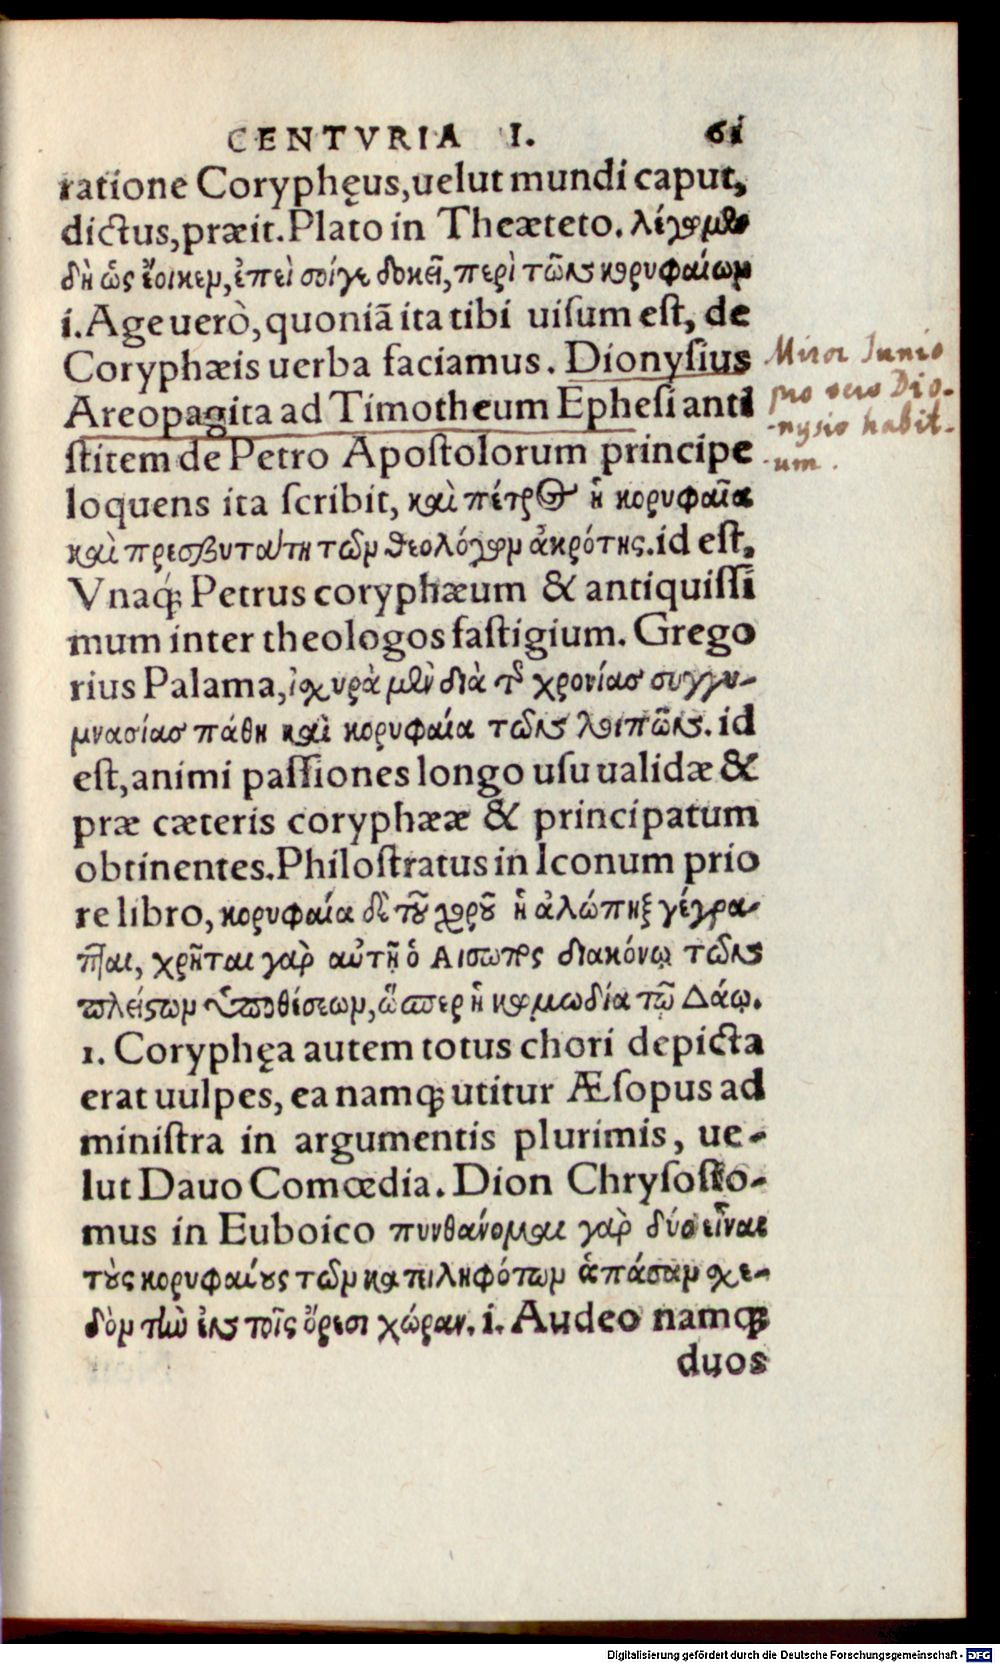 CENTVRIA I. 61
ratione Coryphęus, uelut mundi caput,
dictus, præit. Plato in Theæteto. λέγωμεν
δὴ ὡς ἔοικεν, ἐπεὶ σοίγε δοκεῖ, περὶ τῶν κορυφαίων
i. Age uerò, quoniã ita tibi uisum est, de
Coryphæis uerba faciamus. Dionysius
Areopagita ad Timotheum Ephesi anti
stitem de Petro Apostolorum principe
loquens ita scribit, καὶ πέτρος ἡ κορυφαῖα
καὶ πρεσβυτάτη τῶν θεολόγων ἀκρότης. id est,
Vnaq́; Petrus coryphæum & antiquissi
mum inter theologos fastigium. Grego
rius Palama, ἰσχυρὰ μὲν διὰ τ͂ χρονίας συγγυ-
μνασίας πάθη καὶ κορυφαία τῶν λοιπῶν. id
est, animi passiones longo usu ualidæ &
præ cæteris coryphææ & principatum
obtinentes. Philostratus in Iconum prio
re libro, κορυφαία δὲ τοῦ χοροῦ ἡ ἀλώπηξ γέγρα-
πται, χρῆται γὰρ αὐτῇ ὁ Αισωπος διακόνῳ τῶν
πλείστων ὑποθέσεων, ὥσπερ ἡ κωμωδία τῷ Δάῳ.
1. Coryphęa autem totus chori depicta
erat uulpes, ea namq; utitur Æsopus ad
ministra in argumentis plurimis, ue-
lut Dauo Comœdia. Dion Chrysosto-
mus in Euboico πυνθάνομαι γὰρ δύο εἶναι
τοὺς κορυφαίους τῶν κατειληφότων ἁπάσαν σχε-
δὸν τὴν ἐν τοῖς ὄρεσι χώραν. i. Audeo namq;
duos
Miror Junio
pro vero Dio-
-nysio habit-
-um.
Digitalisierung gefördert durch die Deutsche Forschungsgemeinschaft - DFG